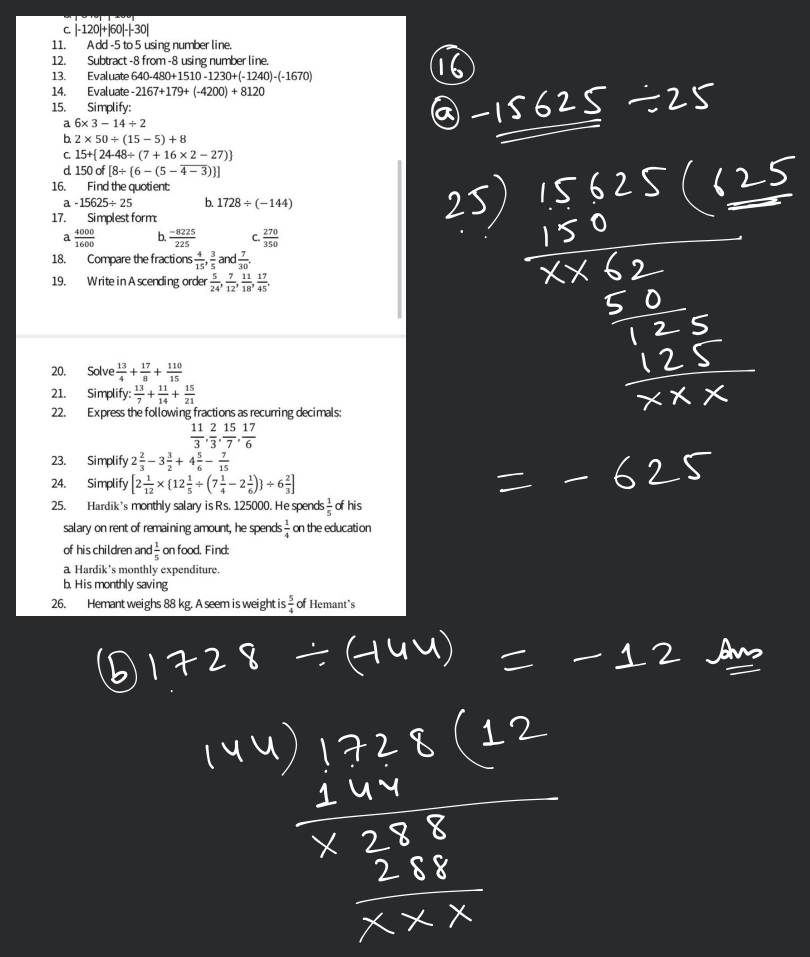 c. |-120|+|60|-|-30|
11. Add -5 to 5 using number line.
12. Subtract -8 from -8 using number line.
13. Evaluate 640-480+1510 -1230+(-1240)-(-1670)
14. Evaluate -2167+179+ (-4200) + 8120
15. Simplify:
a. 6× 3 − 14 ÷ 2
b. 2 × 50 ÷ (15 − 5) + 8
c. 15+{ 24-48÷ (7 + 16 × 2 − 27)}
d. 150 of [8÷ {6 − (5 − 4 − 3)}]
16. Find the quotient:
a. -15625÷ 25 b. 1728 ÷ (−144)
17. Simplest form:
a. 4000/1600 b. −8225/225 c. 270/350
18. Compare the fractions 4/15, 3/5 and 7/30.
19. Write in Ascending order 5/24, 7/12, 11/18, 17/45.
20. Solve 13/4 + 17/8 + 110/15
21. Simplify: 13/7 + 11/14 + 15/21
22. Express the following fractions as recurring decimals:
11/3, 2/3, 15/7, 17/6
23. Simplify 2 2/3 − 3 3/2 + 4 5/6 − 7/15
24. Simplify [2 1/12 × {12 1/5 ÷ (7 1/4 − 2 1/6)} ÷ 6 2/3]
25. Hardik's monthly salary is Rs. 125000. He spends 1/5 of his
salary on rent of remaining amount, he spends 1/4 on the education
of his children and 1/5 on food. Find:
a. Hardik's monthly expenditure.
b. His monthly saving
26. Hemant weighs 88 kg. Aseem is weight is 5/4 of Hemant's
16
a -15625 ÷ 25
25) 15625 (625
150
××62
50
125
125
×××
= - 625
b 1728 ÷ (-144) = -12 Ans
144) 1728 (12
144
× 288
288
×××